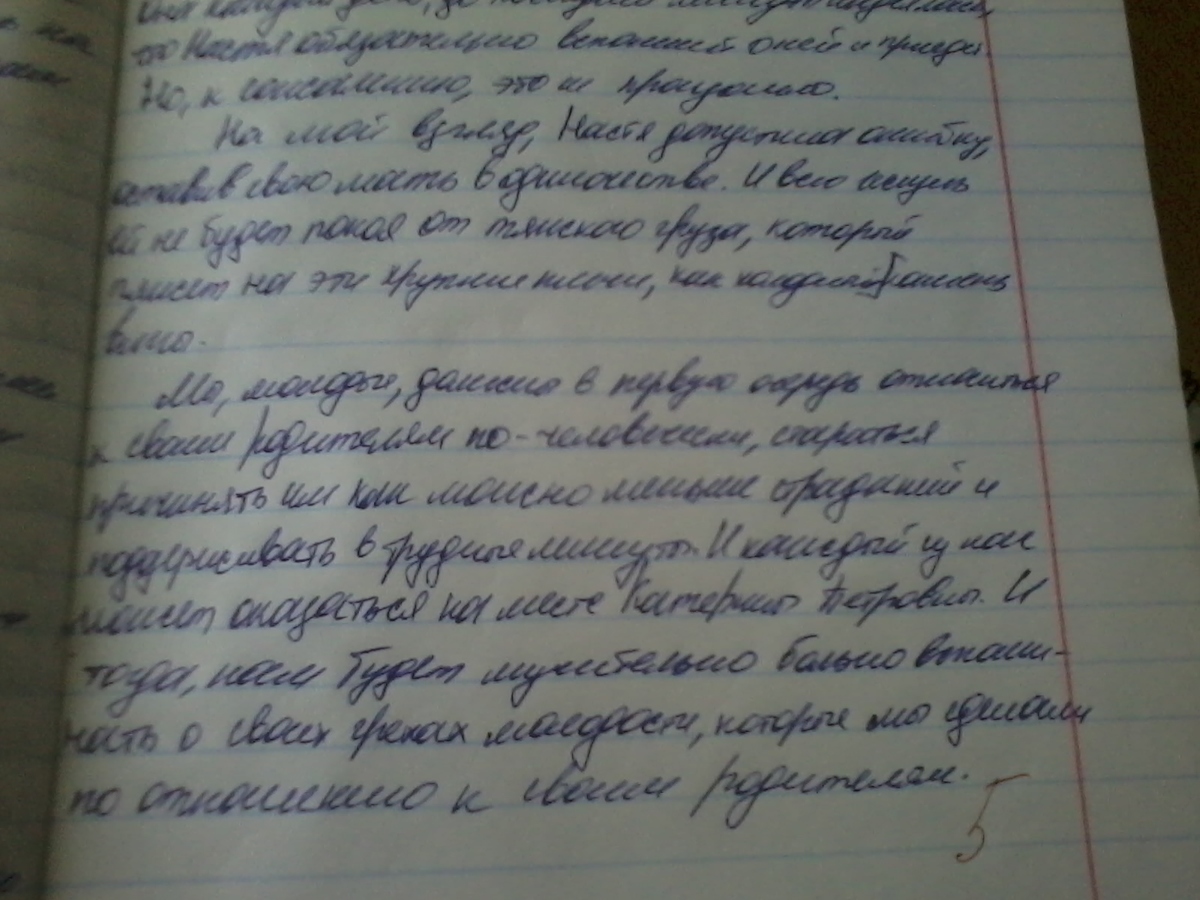 что Настя обязательно вспомнит о ней и приедет.
Но, к сожалению, это не произошло.
На мой взгляд, Настя допустила ошибку,
оставив свою мать в одиночестве. И всю жизнь
ей не будет покоя от тяжского груза, который
на эти хрупкие плечи, как холодный камень
вины.
Мы, молодые, должны в первую очередь относиться
к своим родителям по-человечески, стараться
причинять им как можно меньше страданий и
поддерживать в трудные минуты. И каждый из нас
может оказаться на месте Катерины Петровны. И
тогда, нам будет мучительно больно вспоми-
нать о своих грехах молодости, которые мы сделали
по отношению к своим родителям.
5